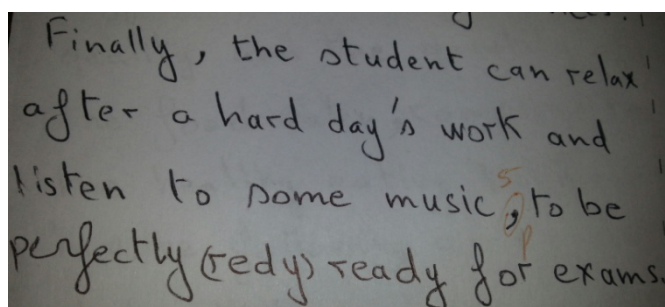 Finally, the student can relax
after a hard day's work and
listen to some music, to be
perfectly (redy) ready for exams.